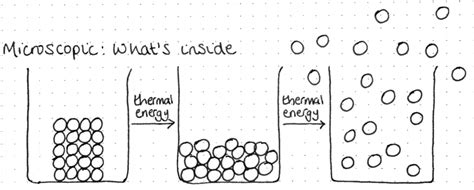 Microscopic: What's inside
thermal
energy
thermal
energy